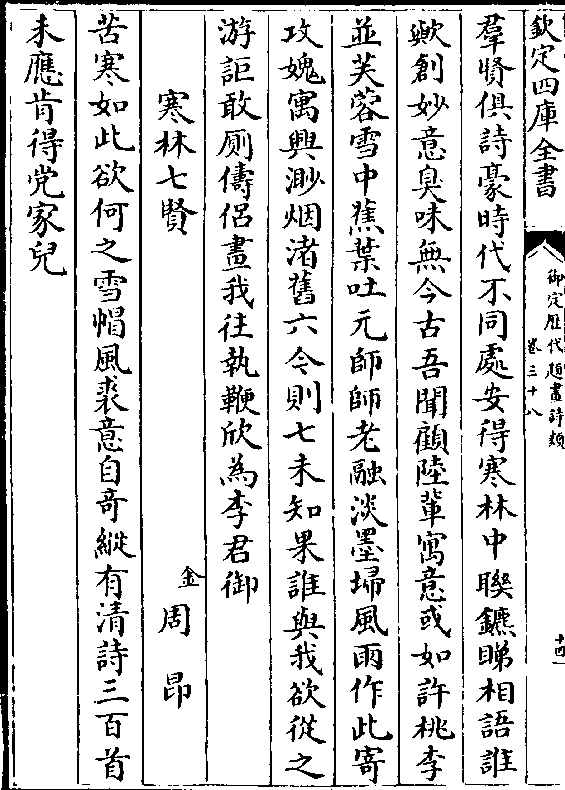 欽定四庫全書
御定歴代題畫詩類
卷三十八
十四
羣賢俱詩豪時代不同處安得寒林中聨鑣睇相語誰
歟創妙意臭味無今古吾聞顧陸輩寓意或如許桃李
並芙蓉雪中蕉葉吐元師師老融淡墨埽風雨作此寄
攻媿寓興渺烟渚舊六今則七未知果誰與我欲從之
游詎敢厠儔侶畫我往執鞭欣為李君御
寒林七賢
金周昂
苦寒如此欲何之雪帽風裘意自竒縱有清詩三百首
未應肯得党家兒